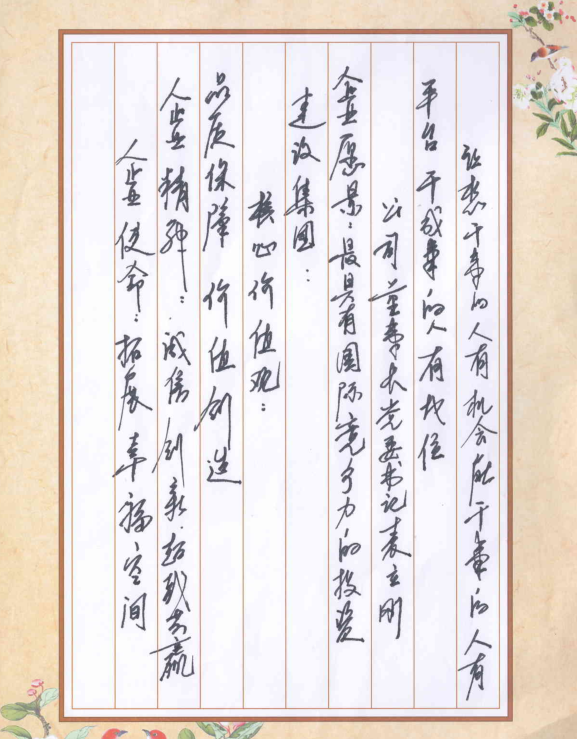 让想干事的人有机会能干事的人有
平台 干成事的人有地位
公司董事长党委书记袁立刚
企业愿景：最具有国际竞争力的投资
建设集团：
核心价值观：
品质保障 价值创造
企业精神：诚信 创新·超越共赢
企业使命：拓展幸福空间